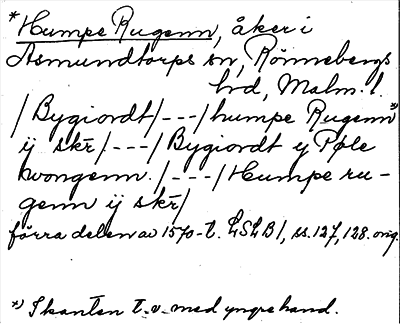 *Humpe Rugenn, åker i
Asmundtorps sn, Rönnebergs
hd, Malm. l.
/Bygiordt/---/humpe Rugenn*)
ij skr/---/Bygiordt y Pøle
wongenn./---/Humpe ru-
genn ij skr/
förra delen av 1570-t. LSLB1, ss. 127, 128. orig.
*) I kanten t.v. med yngre hand.